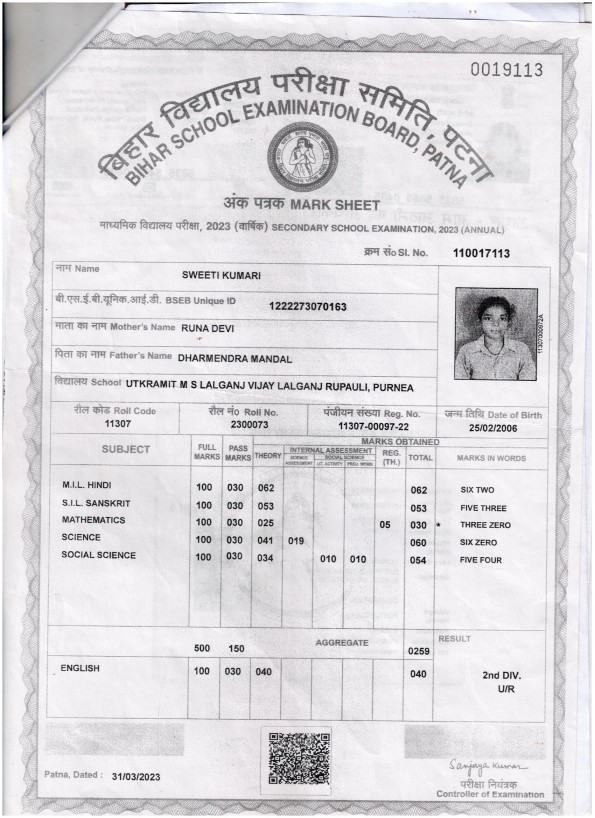 0019113
बिहार विद्यालय परीक्षा समिति, पटना
BIHAR SCHOOL EXAMINATION BOARD, PATNA
अंक पत्रक MARK SHEET
माध्यमिक विद्यालय परीक्षा, 2023 (वार्षिक) SECONDARY SCHOOL EXAMINATION, 2023 (ANNUAL)
क्रम सं० Sl. No. 110017113
नाम Name SWEETI KUMARI
बी.एस.ई.बी.यूनिक.आई.डी. BSEB Unique ID 1222273070163
माता का नाम Mother's Name RUNA DEVI
पिता का नाम Father's Name DHARMENDRA MANDAL
विद्यालय School UTKRAMIT M S LALGANJ VIJAY LALGANJ RUPAULI, PURNEA
रौल कोड Roll Code रौल नं० Roll No. पंजीयन संख्या Reg. No. जन्म तिथि Date of Birth
11307 2300073 11307-00097-22 25/02/2006
MARKS OBTAINED
SUBJECT FULL MARKS PASS MARKS THEORY INTERNAL ASSESSMENT REG. (TH.) TOTAL MARKS IN WORDS
SCIENCE ASSESSMENT SOCIAL SCIENCE LIT. ACTIVITY PROJ. WORK
M.I.L. HINDI 100 030 062 062 SIX TWO
S.I.L. SANSKRIT 100 030 053 053 FIVE THREE
MATHEMATICS 100 030 025 05 030 * THREE ZERO
SCIENCE 100 030 041 019 060 SIX ZERO
SOCIAL SCIENCE 100 030 034 010 010 054 FIVE FOUR
500 150 AGGREGATE 0259 RESULT
ENGLISH 100 030 040 040 2nd DIV.
U/R
Patna, Dated : 31/03/2023
Sanjaya Kumar
परीक्षा नियंत्रक
Controller of Examination